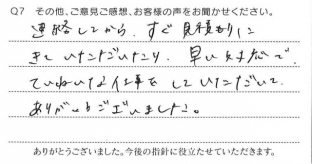 Q7 その他、ご意見ご感想、お客様の声をお聞かせください。
連絡してから、すぐ見積もりに
きていただいたり、早い対応で、
ていねいな仕事をしていただいて、
ありがとうございました。
ありがとうございました。今後の指針に役立たせていただきます。